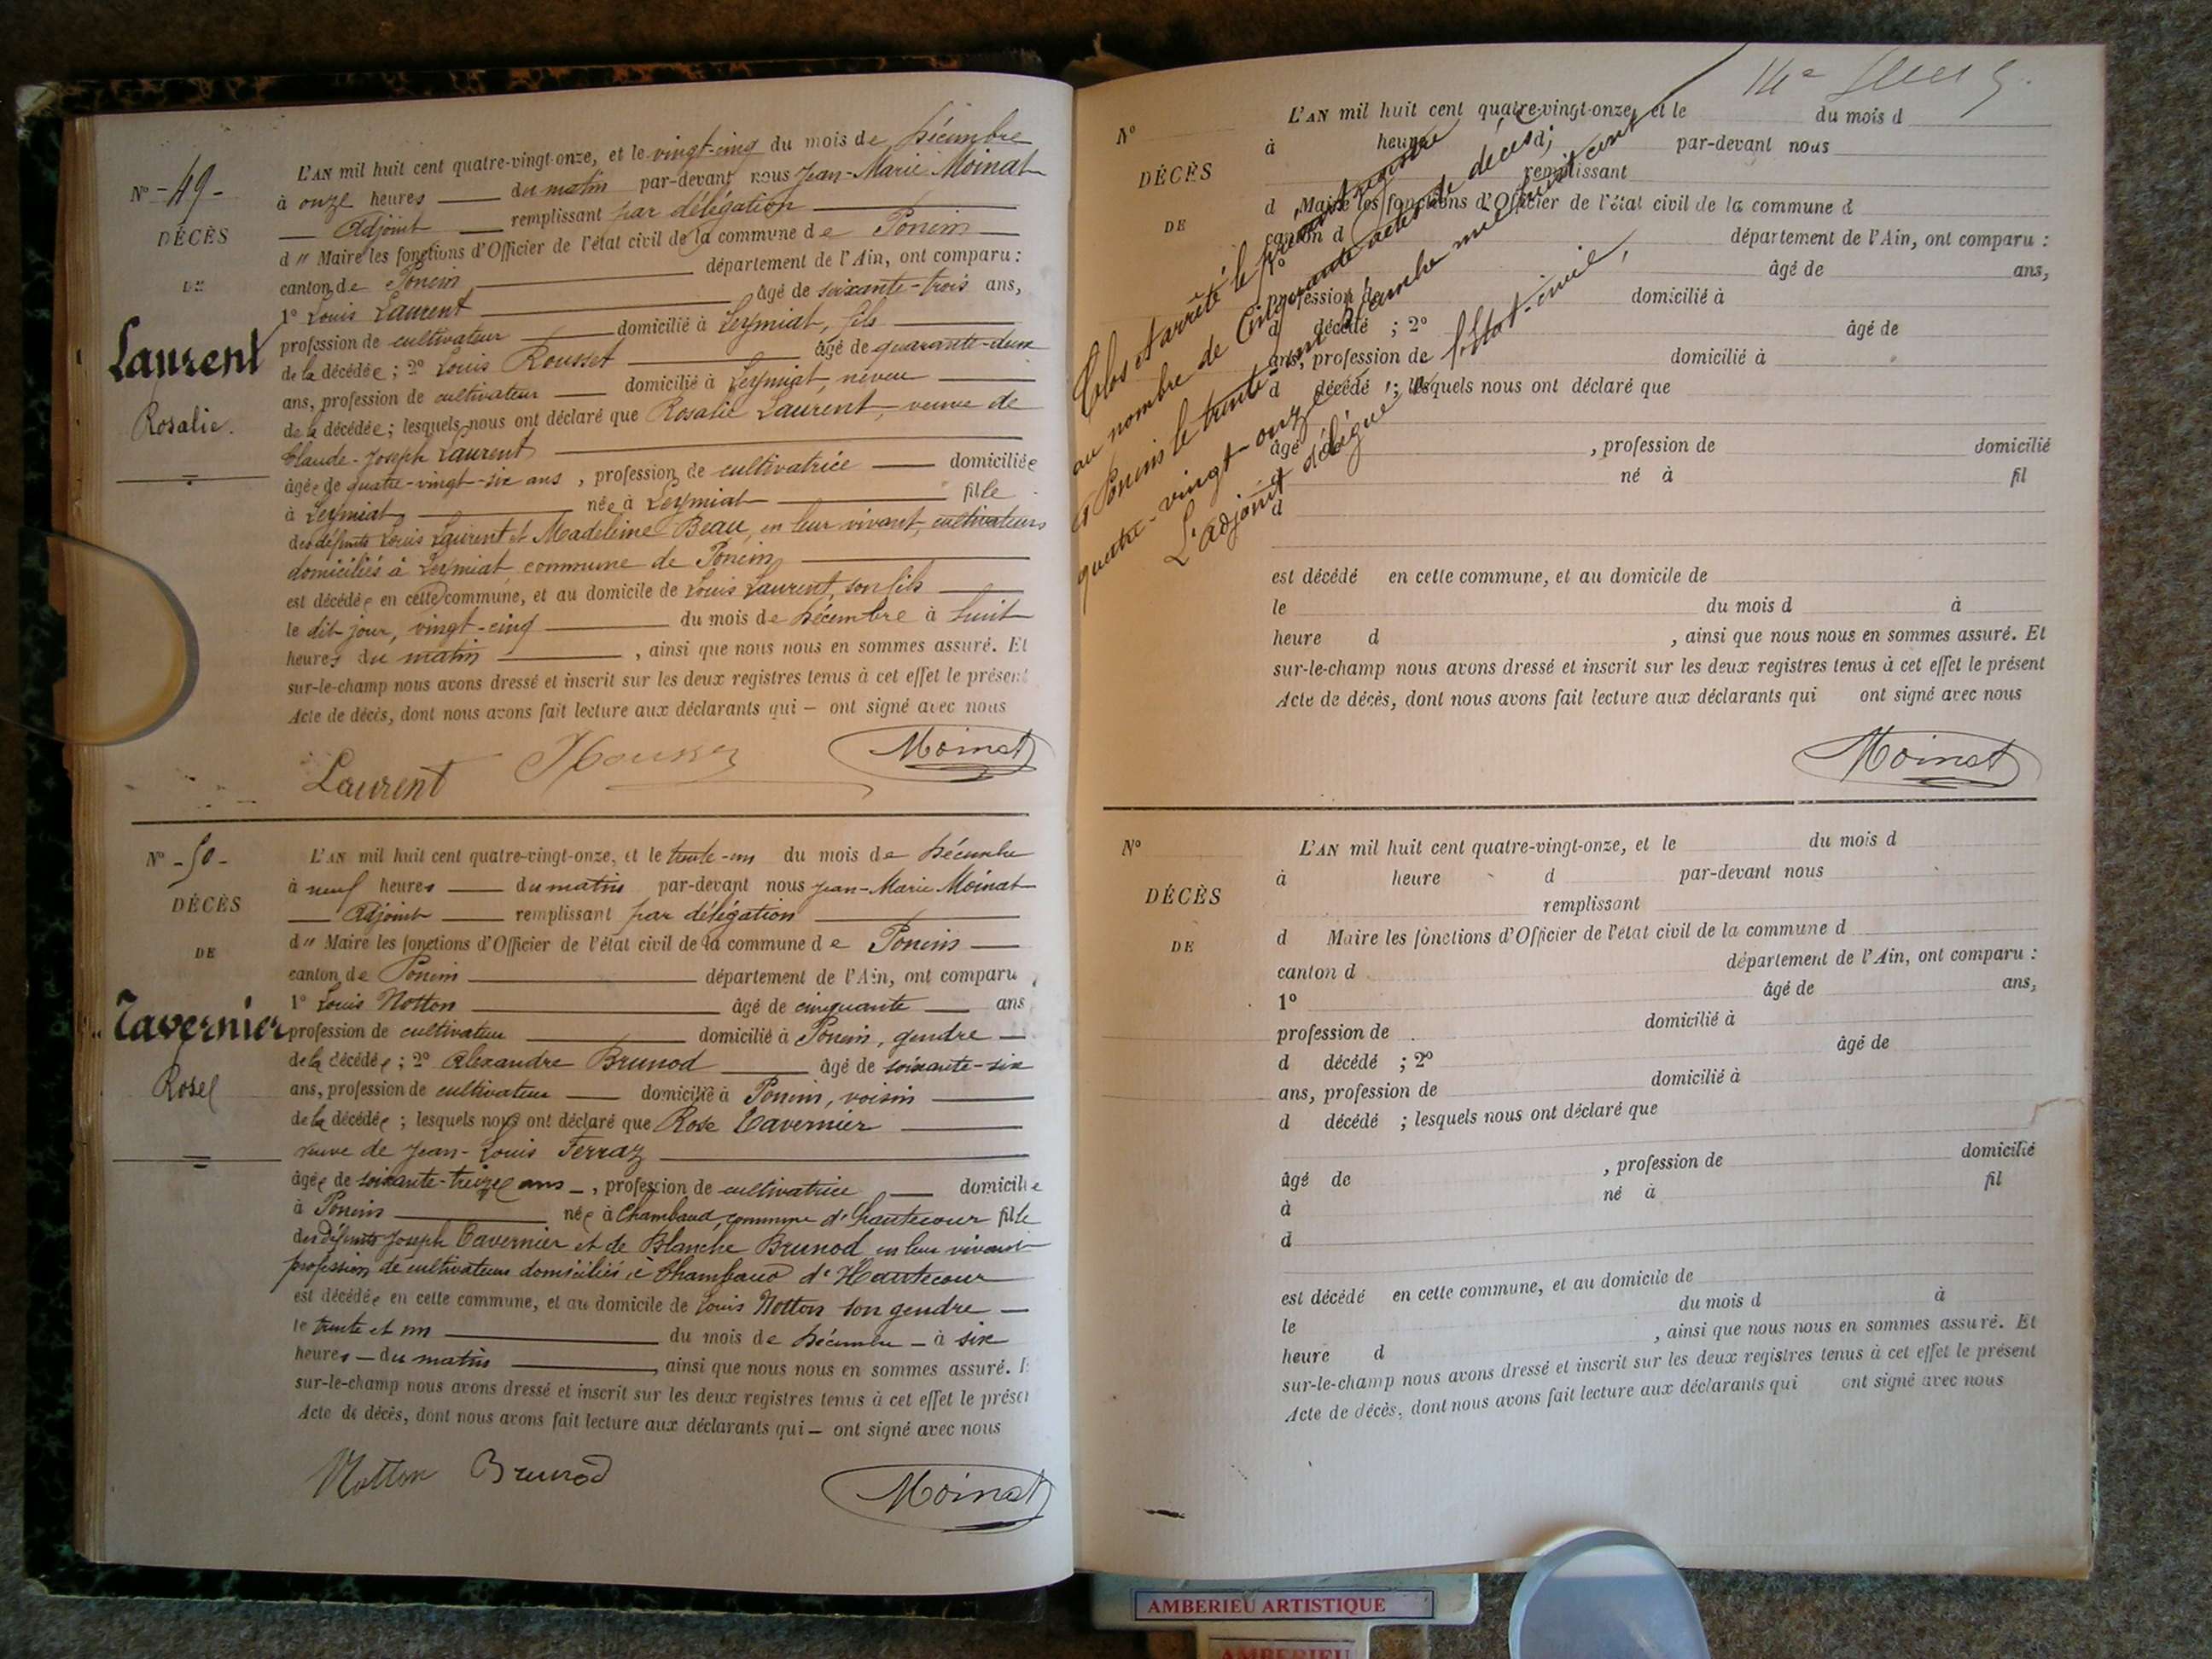 N° - 49 -
DÉCÈS
DE
Laurent
Rosalie.
L'AN mil huit cent quatre-vingt-onze, et le vingt-cinq du mois de Décembre
à onze heures du matin par-devant nous Jean-Marie Moinat
Adjoint remplissant par délégation
d " Maire les fonctions d'Officier de l'état civil de la commune de Poncin
canton de Poncin département de l'Ain, ont comparu :
1° Louis Laurent âgé de soixante-trois ans,
profession de cultivateur domicilié à Leymiat, fils
de la décédée ; 2° Louis Rousset âgé de quarante-deux
ans, profession de cultivateur domicilié à Leymiat, neveu
de la décédée ; lesquels nous ont déclaré que Rosalie Laurent, veuve de
Claude-Joseph Laurent
âgée de quatre-vingt-six ans, profession de cultivatrice domiciliée
à Leymiat née à Leymiat fille
des défunts Louis Laurent et Madeleine Beau, en leur vivant, cultivateurs
domiciliés à Leymiat, commune de Poncin
est décédée en cette commune, et au domicile de Louis Laurent, son fils
le dit jour, vingt-cinq du mois de Décembre à huit
heures du matin , ainsi que nous nous en sommes assuré. Et
sur-le-champ nous avons dressé et inscrit sur les deux registres tenus à cet effet le présent
Acte de décès, dont nous avons fait lecture aux déclarants qui — ont signé avec nous
Laurent Moinat
N° - 50 -
DÉCÈS
DE
Tavernier
Rose
L'AN mil huit cent quatre-vingt-onze, et le trente-un du mois de Décembre
à neuf heures du matin par-devant nous Jean-Marie Moinat
Adjoint remplissant par délégation
d " Maire les fonctions d'Officier de l'état civil de la commune de Poncin
canton de Poncin département de l'Ain, ont comparu
1° Louis Notton âgé de cinquante ans
profession de cultivateur domicilié à Poncin, gendre
de la décédée ; 2° Alexandre Brunod âgé de soixante-six
ans, profession de cultivateur domicilié à Poncin, voisin
de la décédée ; lesquels nous ont déclaré que Rose Tavernier
veuve de Jean-Louis Ferraz
âgée de soixante-treize ans, profession de cultivatrice domicilie
à Poncin née à Chambaud, commune d'Hautecour fille
des défunts Joseph Tavernier et de Blanche Brunod en leur vivant
profession de cultivateurs domiciliés à Chambaud d'Hautecour
est décédée en cette commune, et au domicile de Louis Notton son gendre
le trente et un du mois de Décembre à six
heures du matin , ainsi que nous nous en sommes assuré.
sur-le-champ nous avons dressé et inscrit sur les deux registres tenus à cet effet le présen
Acte de décès, dont nous avons fait lecture aux déclarants qui — ont signé avec nous
Notton Brunod Moinat
N°
DÉCÈS
DE
L'AN mil huit cent quatre-vingt-onze, et le du mois d
à heure d par-devant nous
remplissant
d Maire les fonctions d'Officier de l'état civil de la commune d
canton d département de l'Ain, ont comparu :
1° âgé de ans,
profession de domicilié à
d décédé ; 2° âgé de
ans, profession de domicilié à
d décédé ; lesquels nous ont déclaré que
âgé , profession de domicilié
né à fil
d
est décédé en cette commune, et au domicile de
le du mois d à
heure d , ainsi que nous nous en sommes assuré. Et
sur-le-champ nous avons dressé et inscrit sur les deux registres tenus à cet effet le présent
Acte de décès, dont nous avons fait lecture aux déclarants qui ont signé avec nous
Clos et arrêté le présent registre
au nombre de Cinquante actes de décès,
à Poncin le trente-un Décembre mil huit cent
quatre-vingt-onze.
L'adjoint délégué à l'état-civil,
Moinat
N°
DÉCÈS
DE
L'AN mil huit cent quatre-vingt-onze, et le du mois d
à heure d par-devant nous
remplissant
d Maire les fonctions d'Officier de l'état civil de la commune d
canton d département de l'Ain, ont comparu :
1° âgé de ans,
profession de domicilié à
d décédé ; 2° âgé de
ans, profession de domicilié à
d décédé ; lesquels nous ont déclaré que
âgé de , profession de domicilié
à né à fil
d
est décédé en cette commune, et au domicile de
le du mois d à
heure d , ainsi que nous nous en sommes assuré. Et
sur-le-champ nous avons dressé et inscrit sur les deux registres tenus à cet effet le présent
Acte de décès, dont nous avons fait lecture aux déclarants qui ont signé avec nous
AMBERIEU ARTISTIQUE
AMBERIEU